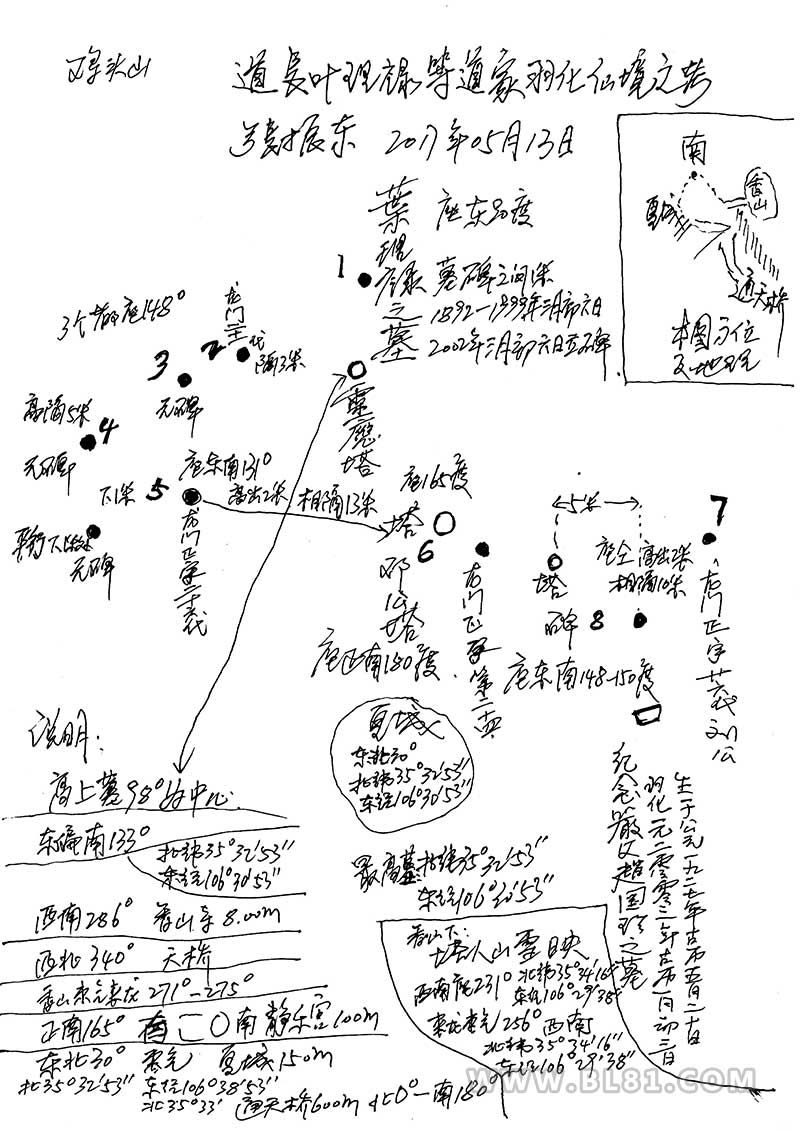 道长叶理禄等道家羽化仙境之考
2017年05月13日
南
香山
夏城
通天桥
本图方位
及地理
葉理禄之墓
座东90度
墓碑之间1米
2002年三月初六日立碑
1
3个墓座148°
龙门二十代
2
隔3米
3
无碑
高隔5米
4
无碑
座东南131°
高出2米
相隔13米
下1米
5
无碑
龙门正宗二十代
靈應塔
座165度
塔
6
邓公塔
座正南180度
5米
塔
碑
8
高出2米
相隔10米
座东南148-150度
7
说明：
高上墓98°为中心
东偏南133°
北纬35°32′53″
东经106°30′53″
西南286° 香山寺8.00m
西北340° 天桥
香山来龙271°-275°
正南165°
南静乐宫100m
东北30°
夏城150m
北35°32′53″
东经106°38′53″
北35°33′
通天桥600m
北0°-南180°
夏城
东北30°
北纬35°32′53″
东经106°30′53″
最高墓北纬35°32′53″
东经106°30′53″
香山下：
塔人山靈映
西南座231°
北纬35°34′16″
东经106°29′38″
256° 西南
北纬35°34′16″
东经106°29′38″
纪念严父赵国珍之墓
生于公元一九二七年古历五月二十日
羽化二零零二年古历一月初三日
WWW.BL81.COM